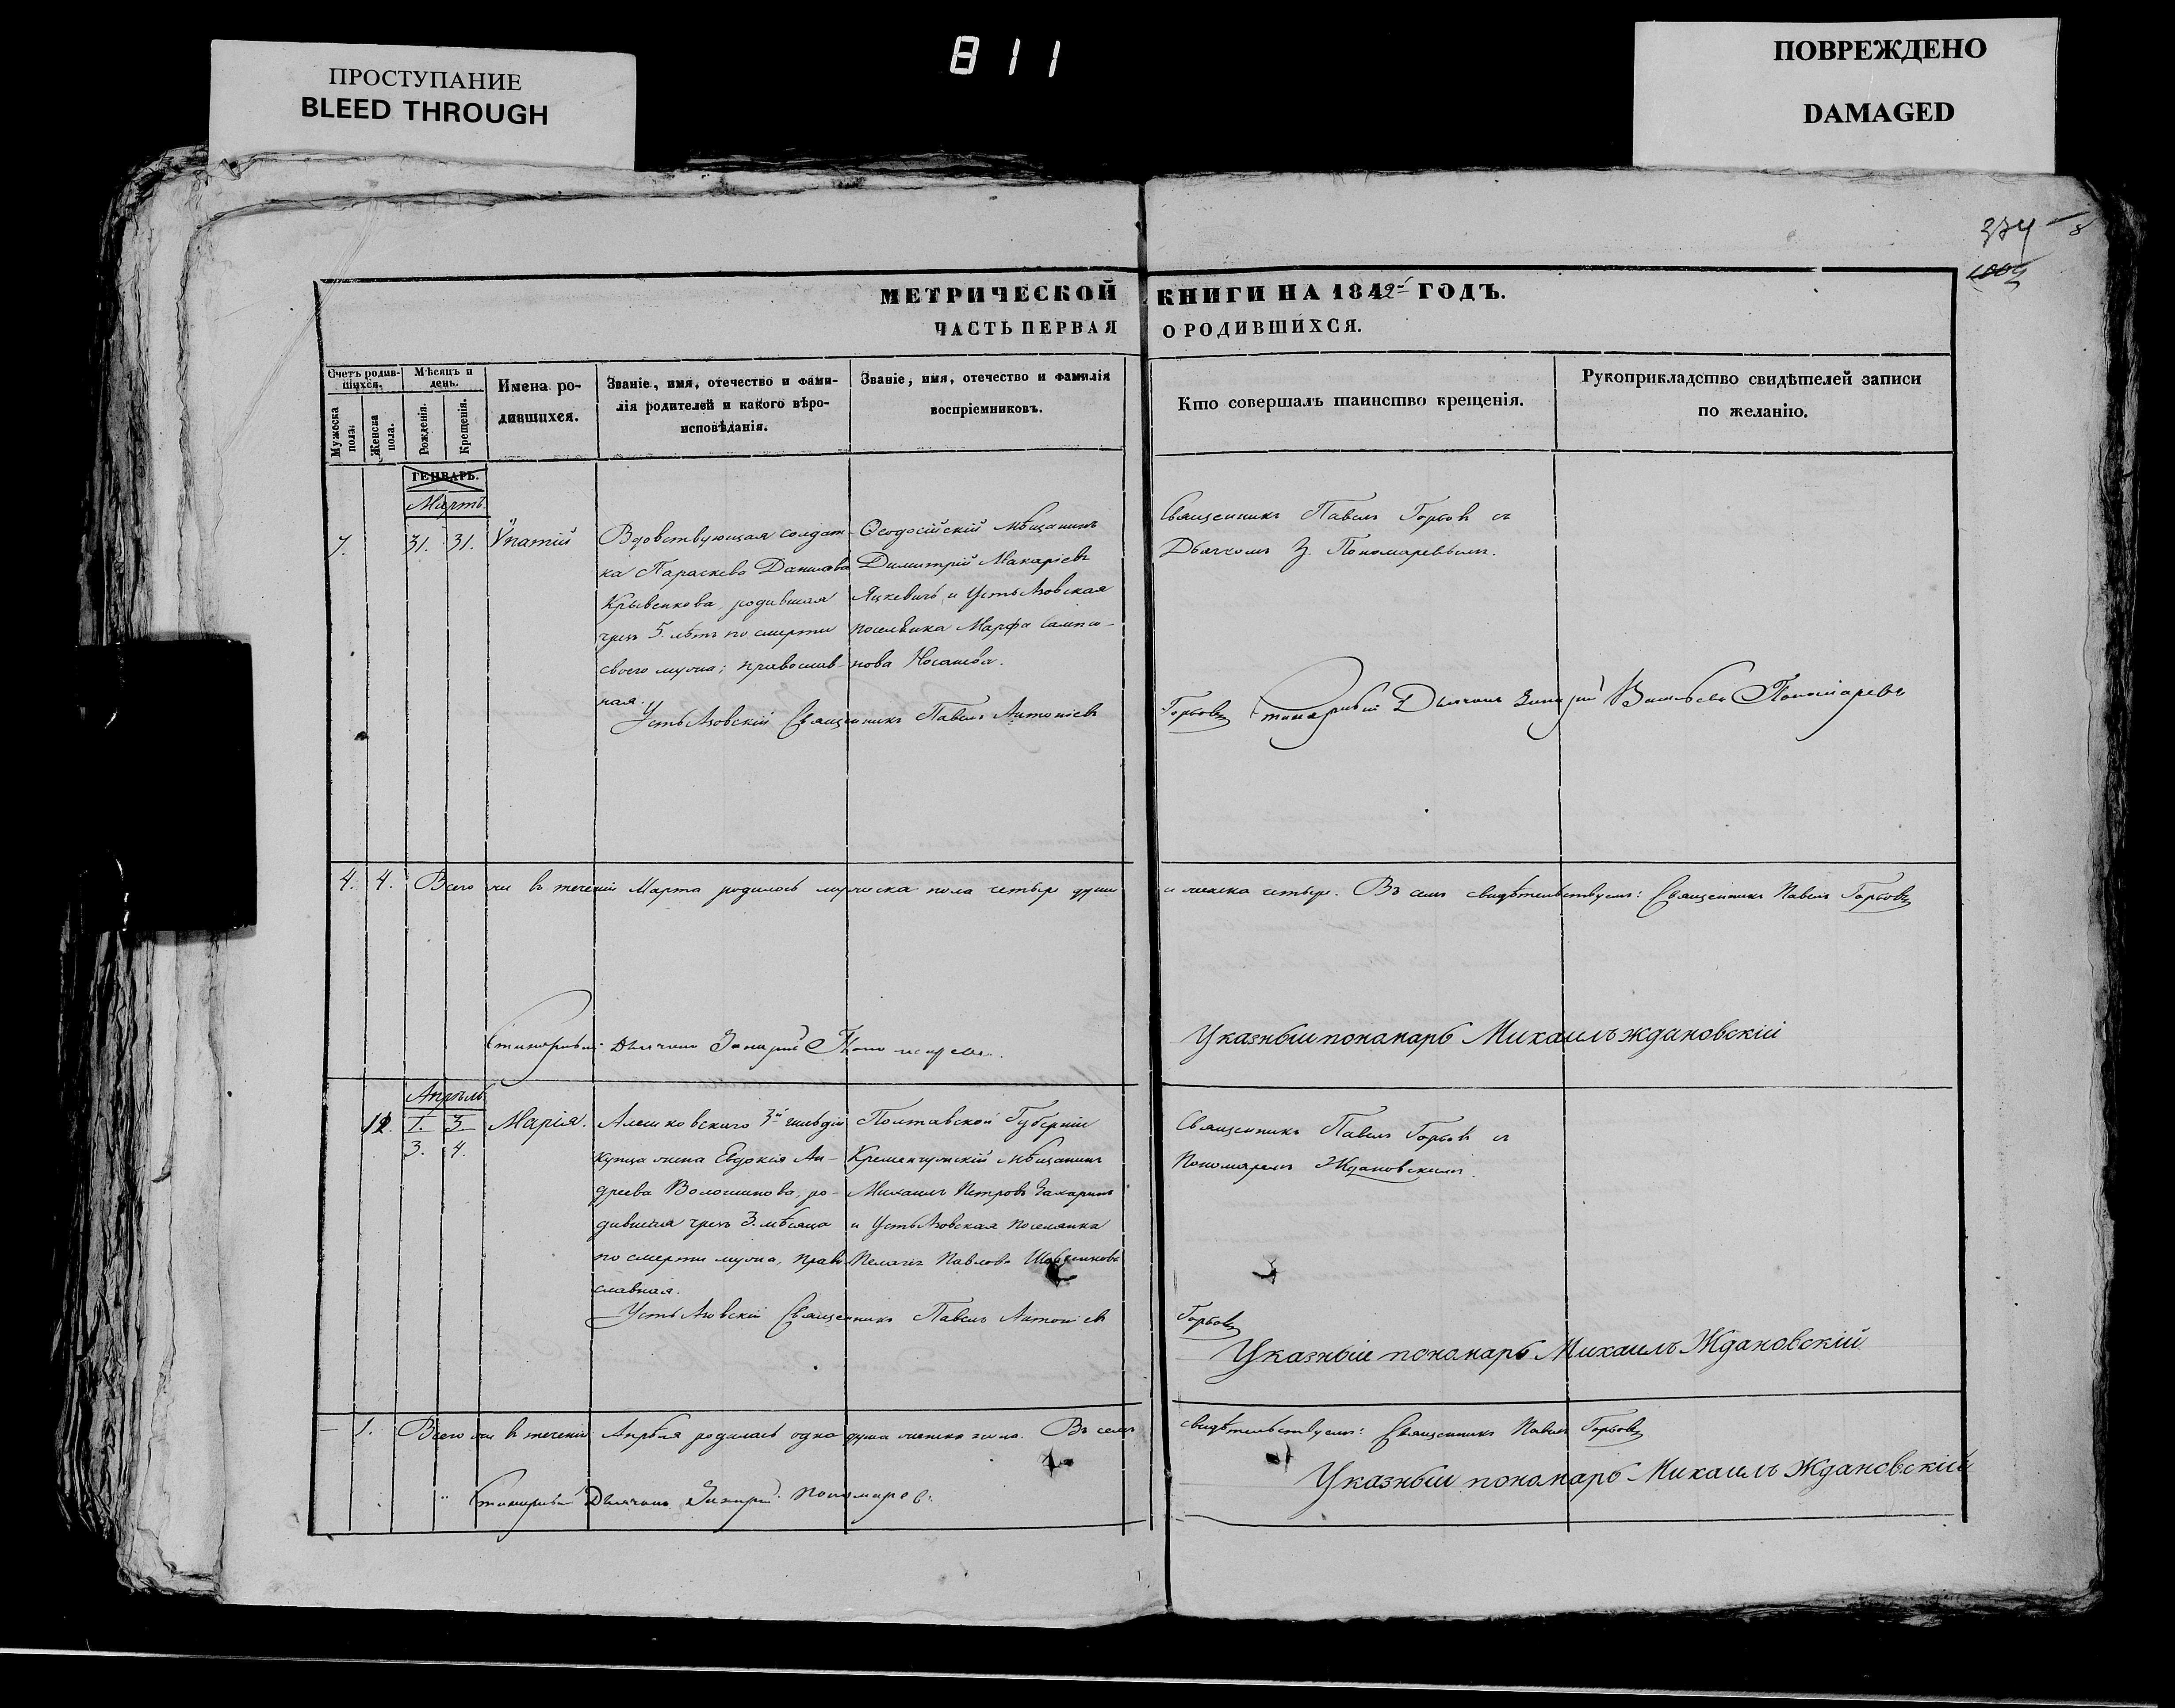 ПРОСТУПАНИЕ
BLEED THROUGH
811
ПОВРЕЖДЕНО
DAMAGED
374
МЕТРИЧЕСКОЙ КНИГИ НА 1842й ГОДЪ.
ЧАСТЬ ПЕРВАЯ О РОДИВШИХСЯ.
Счетъ родив-
шихся.
Мужеска
пола.
Женска
пола.
Мѣсяцъ и
день.
Рожденія.
Крещенія.
Имена ро-
дившихся.
Званіе, имя, отечество и фами-
лія родителей и какого вѣро-
исповѣданія.
Званіе, имя, отечество и фамилія
воспріемниковъ.
Кто совершалъ таинство крещенія.
Рукоприкладство свидѣтелей записи
по желанію.
ГЕНВАРЬ.
Мартъ.
7.
31. 31.
Ѵпатій
Вдовствующая солдат-
ка Параскева Данилова
Крывенкова, родившая
чрезъ 5. лѣтъ по смерти
своего мужа; православ-
ная.
Ѳеодосійскій мѣщанинъ
Димитрій Макаріевъ
Яцкевичъ, и Усть Азовская
поселянка Марфа Сампсо-
нова Носачева.
Священникъ Павелъ Горбов съ
Дьячкомъ З. Пономаревымъ.
Усть Азовскій Священникъ Павелъ Антоніевъ Горбовъ
Дьячокъ Захарій Васильевъ Пономаревъ
4. 4. Всего же въ теченіи Марта родилось мужеска пола четыре души и женска четыре. Въ семъ свидѣтельствуемъ: Священникъ Павелъ Горбовъ
Дьячокъ Захарій Пономаревъ.
Указный пономарь Михаилъ Ждановскій
Апрѣль
12.
1. 3.
3. 4.
Марія.
Алешковскаго 3й гильдіи
купца жена Евдокія Ан-
дреева Волошинова, ро-
дившая чрезъ 3. мѣсяца
по смерти мужа, право-
славная.
Полтавской Губерніи
Кременчужскій мѣщанинъ
Михаилъ Петровъ Захаринъ
и Усть Азовская поселянка
Пелагія Павлова
Священникъ Павелъ Горбов съ
Пономаремъ Ждановскимъ.
Усть Азовскій Священникъ Павелъ Антоніевъ Горбовъ
Указный пономарь Михаилъ Ждановскій
1. Всего же въ теченіи Апрѣля родилась одна душа женска пола. Въ семъ свидѣтельствуемъ: Священникъ Павелъ Горбовъ
Дьячокъ Захарій Пономаревъ.
Указный пономарь Михаилъ Ждановскій